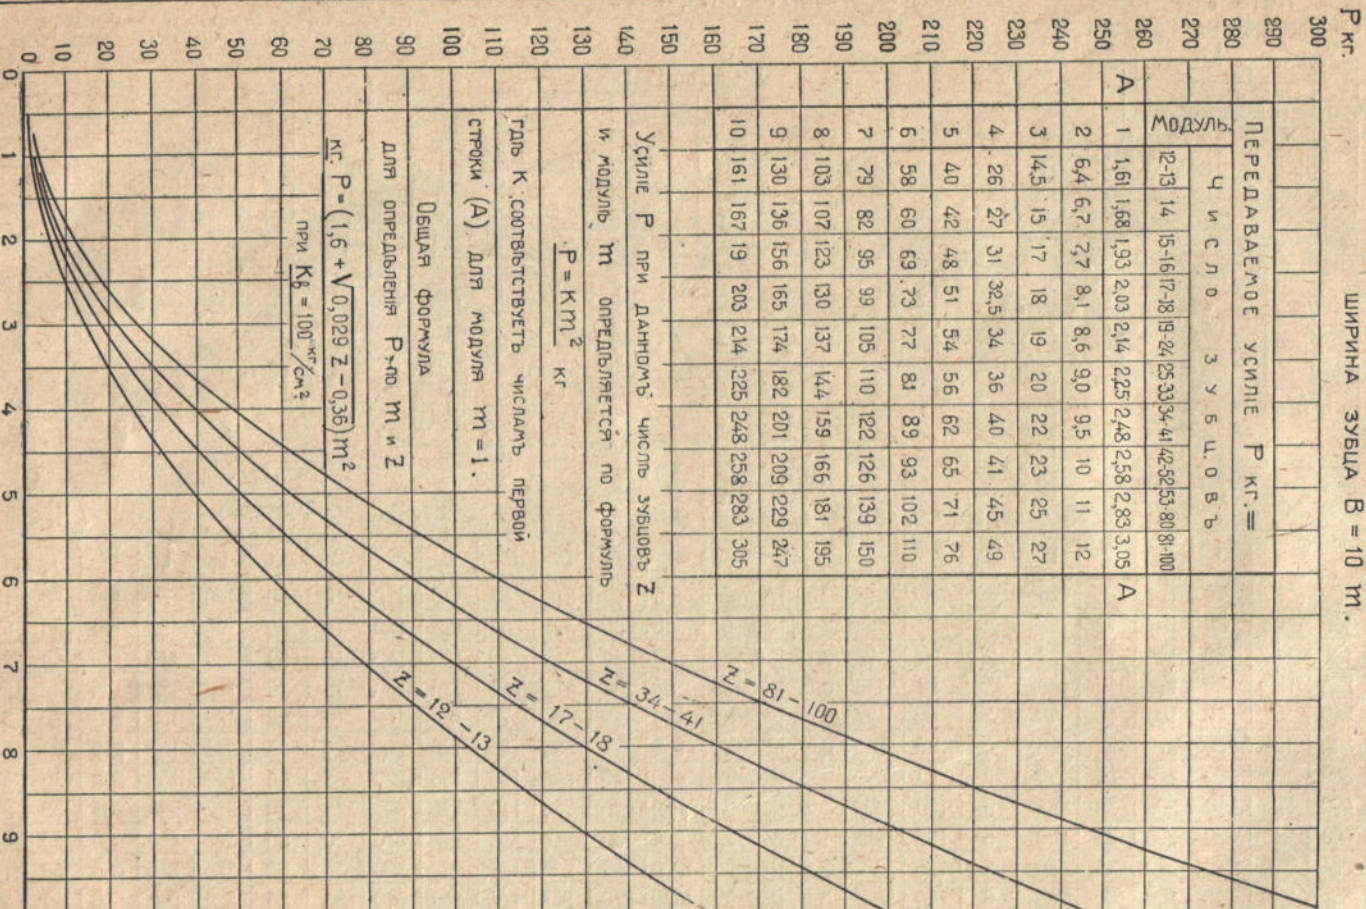 ШИРИНА ЗУБЦА B = 10 m.
P кг.
300
290
280
270
260
250
240
230
220
210
200
190
180
170
160
150
140
130
120
110
100
90
80
70
60
50
40
30
20
10
0
0 1 2 3 4 5 6 7 8 9
ПЕРЕДАВАЕМОЕ УСИЛІЕ P кг.=
МОДУЛЬ. ЧИСЛО ЗУБЦОВЪ
12-13 14 15-16 17-18 19-24 25-33 34-41 42-52 53-80 81-100
A 1 1,61 1,68 1,93 2,03 2,14 2,25 2,48 2,58 2,83 3,05 A
2 6,4 6,7 7,7 8,1 8,6 9,0 9,5 10 11 12
3 14,5 15 17 18 19 20 22 23 25 27
4 26 27 31 32,5 34 36 40 41 45 49
5 40 42 48 51 54 56 62 65 71 76
6 58 60 69 73 77 81 89 93 102 110
7 79 82 95 99 105 110 122 126 139 150
8 103 107 123 130 137 144 159 166 181 195
9 130 136 156 165 174 182 201 209 229 247
10 161 167 19 203 214 225 248 258 283 305
УСИЛІЕ P ПРИ ДАННОМЪ ЧИСЛѢ ЗУБЦОВЪ Z
И МОДУЛѢ m ОПРЕДѢЛЯЕТСЯ ПО ФОРМУЛѢ
P = Km² кг
ГДѢ K СООТВѢТСТВУЕТЪ ЧИСЛАМЪ ПЕРВОЙ
СТРОКИ (A) ДЛЯ МОДУЛЯ m = 1.
ОБЩАЯ ФОРМУЛА
ДЛЯ ОПРЕДѢЛЕНІЯ P ПО m И Z
кг. P = (1,6 + √0,029 Z – 0,36) m²
ПРИ Kb = 100 кг/см²
Z = 81 – 100
Z = 34 – 41
Z = 17 – 18
Z = 12 – 13